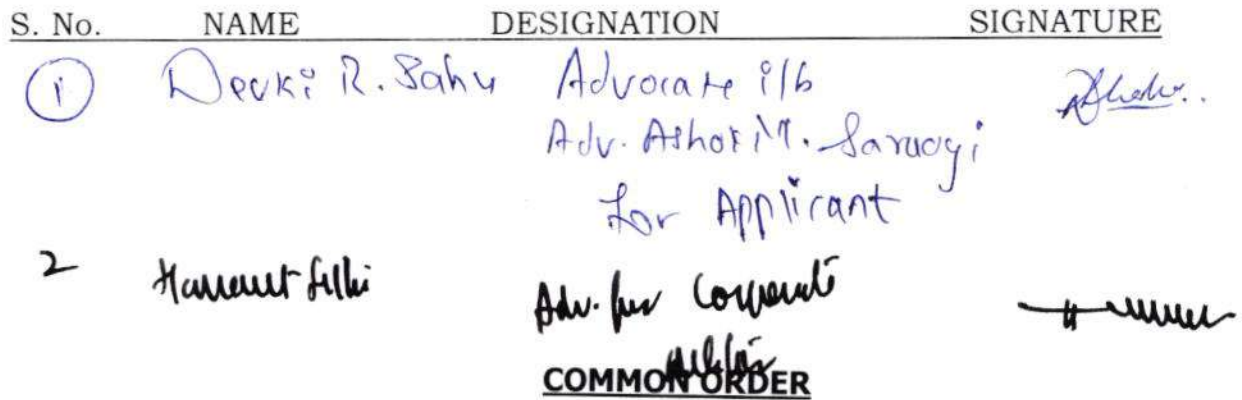 S. No. NAME DESIGNATION SIGNATURE
1 Devki R. Sahu Advocate i/b
Adv. Ashok M. Saraogi
For Applicant
2 Adv. for Corporate
COMMON ORDER